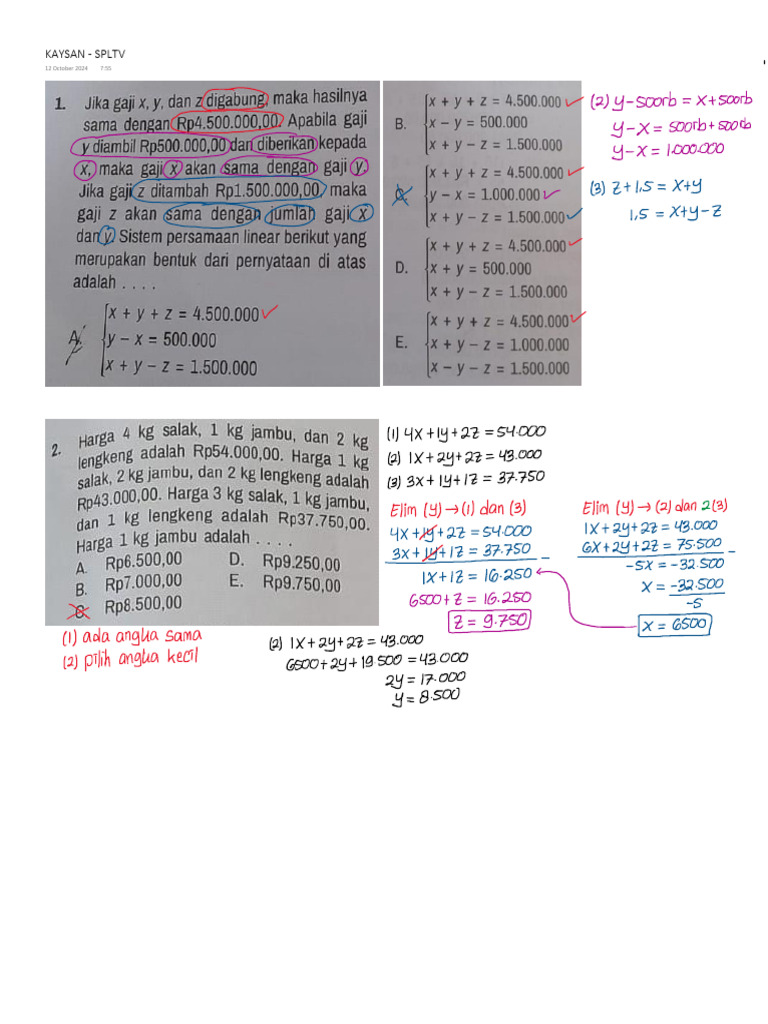 KAYSAN - SPLTV
12 October 2024 7:55
1. Jika gaji x, y, dan z digabung, maka hasilnya
sama dengan Rp4.500.000,00. Apabila gaji
y diambil Rp500.000,00 dan diberikan kepada
x, maka gaji x akan sama dengan gaji y.
Jika gaji z ditambah Rp1.500.000,00, maka
gaji z akan sama dengan jumlah gaji x
dan y. Sistem persamaan linear berikut yang
merupakan bentuk dari pernyataan di atas
adalah . . . .
A. x + y + z = 4.500.000
y – x = 500.000
x + y – z = 1.500.000
B. x + y + z = 4.500.000
x – y = 500.000
x + y – z = 1.500.000
C. x + y + z = 4.500.000
y – x = 1.000.000
x + y – z = 1.500.000
D. x + y + z = 4.500.000
x + y = 500.000
x + y – z = 1.500.000
E. x + y + z = 4.500.000
x + y – z = 1.000.000
x – y – z = 1.500.000
(2) y – 500rb = x + 500rb
y – x = 500rb + 500rb
y – x = 1.000.000
(3) z + 1,5 = x + y
1,5 = x + y – z
2. Harga 4 kg salak, 1 kg jambu, dan 2 kg
lengkeng adalah Rp54.000,00. Harga 1 kg
salak, 2 kg jambu, dan 2 kg lengkeng adalah
Rp43.000,00. Harga 3 kg salak, 1 kg jambu,
dan 1 kg lengkeng adalah Rp37.750,00.
Harga 1 kg jambu adalah . . . .
A. Rp6.500,00
B. Rp7.000,00
C. Rp8.500,00
D. Rp9.250,00
E. Rp9.750,00
(1) ada angka sama
(2) pilih angka kecil
(1) 4x + 1y + 2z = 54.000
(2) 1x + 2y + 2z = 43.000
(3) 3x + 1y + 1z = 37.750
Elim (y) → (1) dan (3)
4x + 1y + 2z = 54.000
3x + 1y + 1z = 37.750 –
1x + 1z = 16.250
6500 + z = 16.250
z = 9.750
Elim (y) → (2) dan 2(3)
1x + 2y + 2z = 43.000
6x + 2y + 2z = 75.500 –
-5x = -32.500
x = -32.500
-5
x = 6500
(2) 1x + 2y + 2z = 43.000
6500 + 2y + 19.500 = 43.000
2y = 17.000
y = 8.500